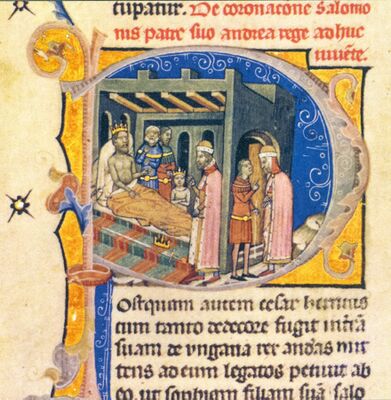 cupatur. De coronacōne Salomo
nis patre suo andrea rege adhuc
uiuēte.
Postquam autem cesar henricus
cum tanto dedecore fugit in trā
suam de vngaria rex andās mit
tens ad eum legatos petiuit ab
eo, ut sophiam filiam suā salo